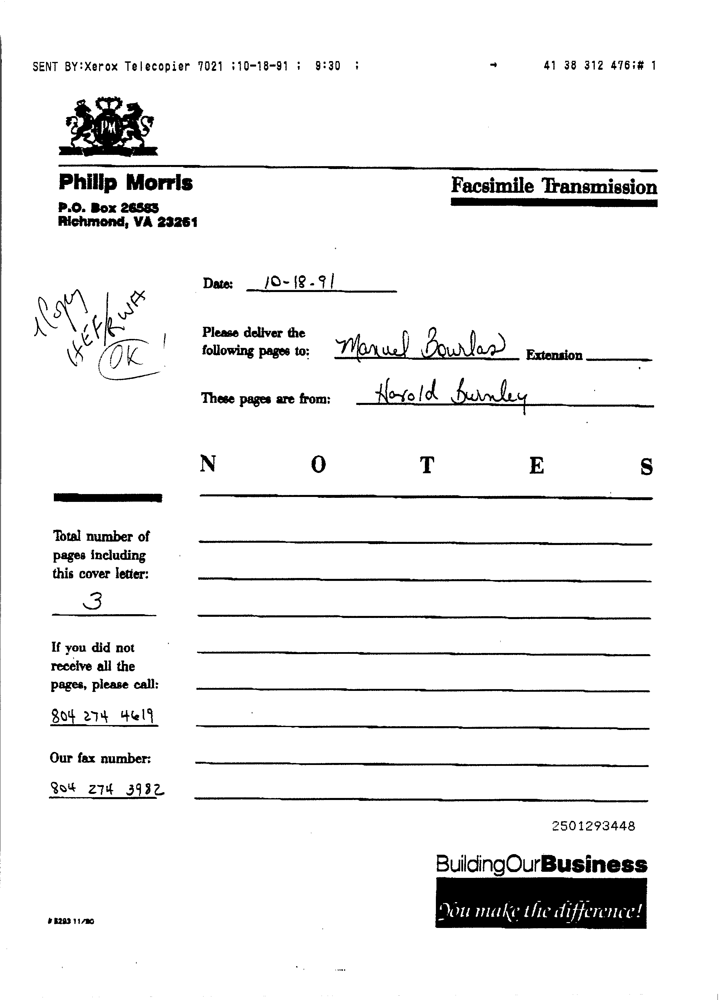 SENT BY:Xerox Telecopier 7021 ;10-18-91 ; 9:30 ; → 41 38 312 476;# 1
PM
Philip Morris
Facsimile Transmission
P.O. Box 26583
Richmond, VA 23261
Date: 10-18-91
1 Copy
HEF/RWA
OK !
Please deliver the
following pages to: Manuel Bourlas Extension
These pages are from: Harold Burnley
N O T E S
Total number of
pages including
this cover letter:
3
If you did not
receive all the
pages, please call:
804 274 4619
Our fax number:
804 274 3982
2501293448
BuildingOurBusiness
You make the difference!
# 5293 11/90